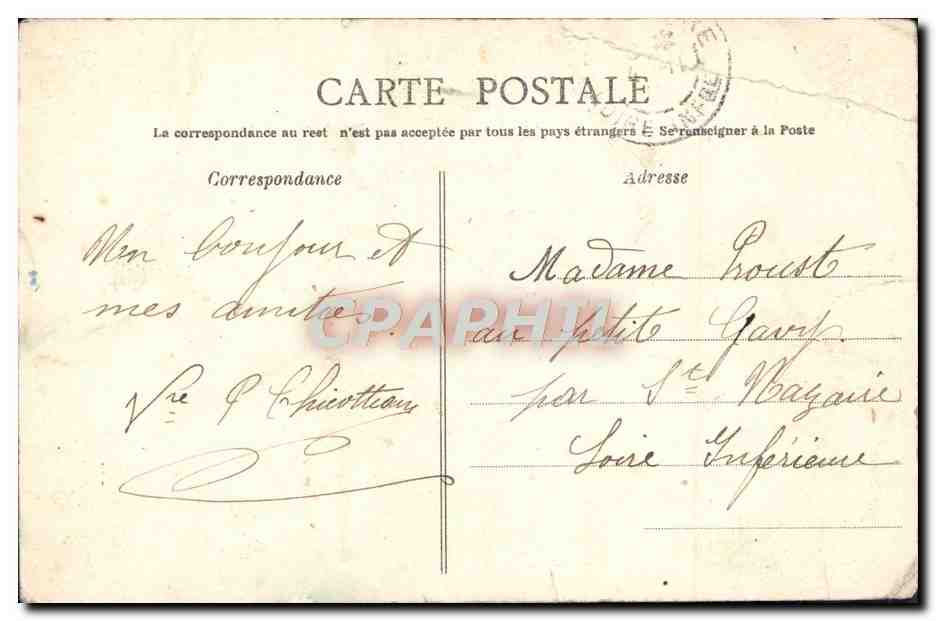 CARTE POSTALE
La correspondance au rest n'est pas acceptée par tous les pays étrangers - Se renseigner à la Poste
Correspondance
Adresse
Mon bonjour et
mes amitiés.
Vve P Chicotteau
Madame Proust
au petit Gavy.
par St Nazaire
Loire Inférieure
CPAPHIL
LOIRE INFRE